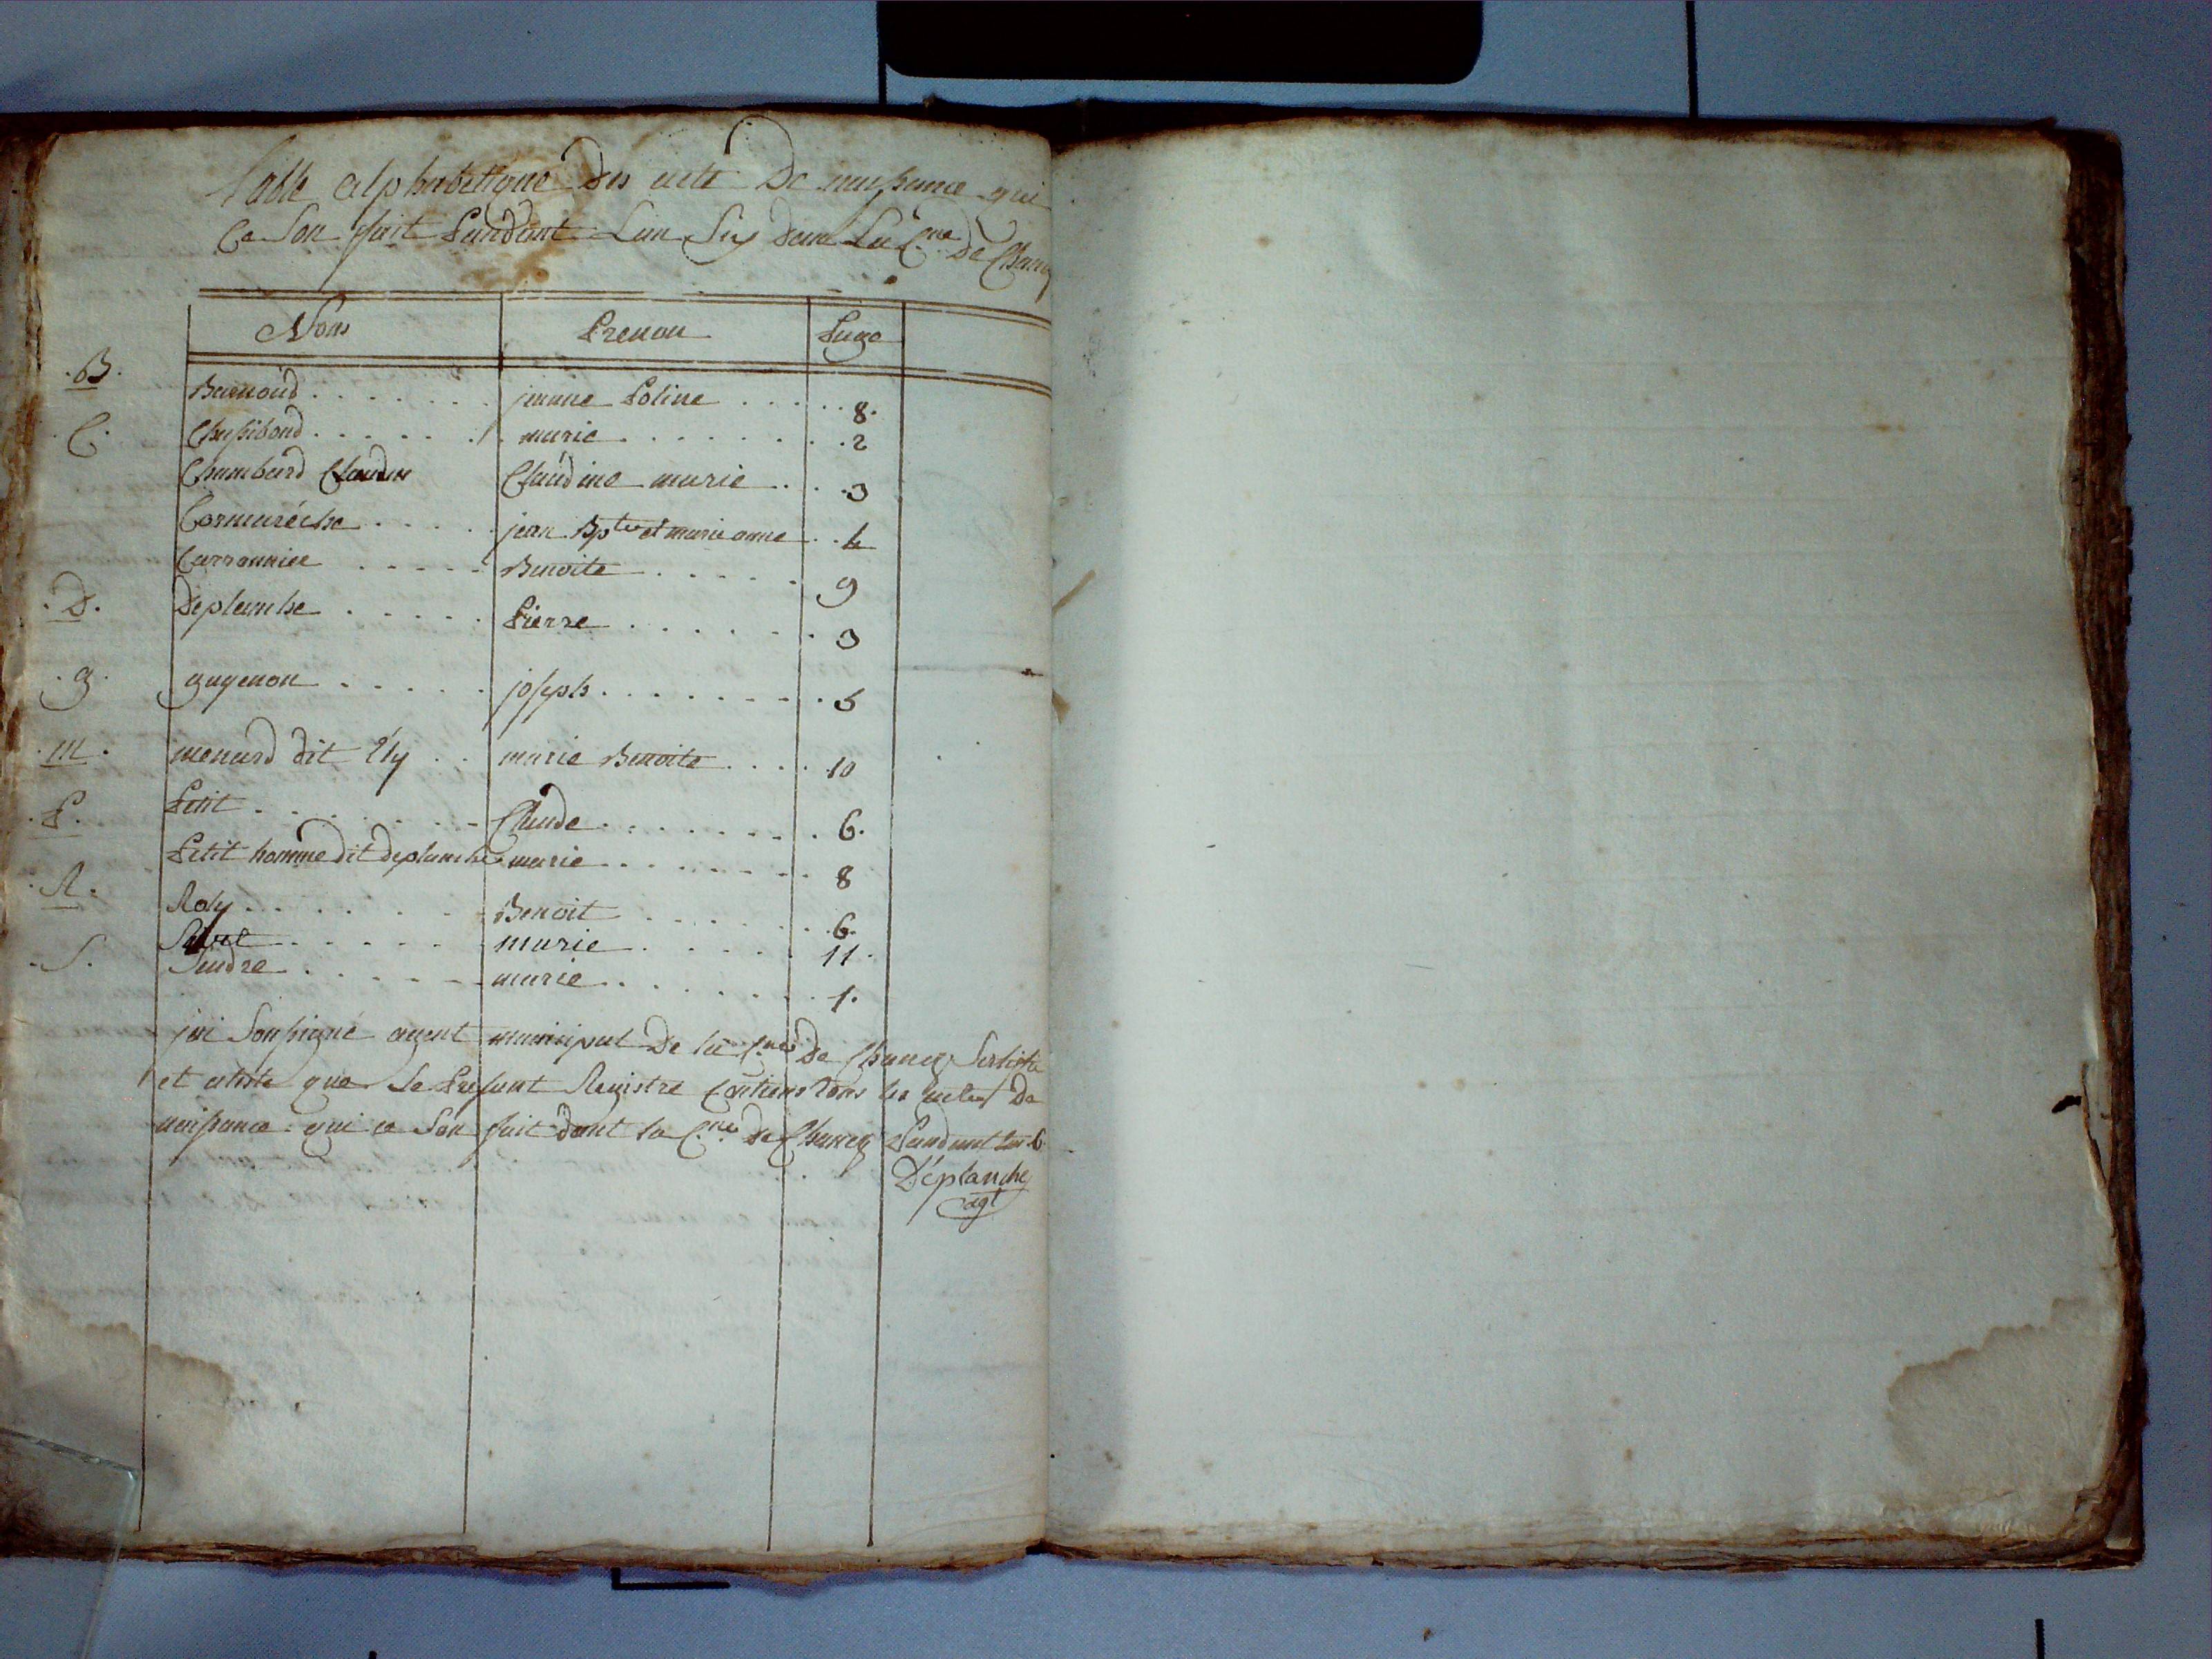 Table alphabettque des acte De naissance qui
Ce Son fait Pandant Lan Six dans La Cne De Chaneq
Noms Prenom Page
.B. Barnoud . . . . . . . jeanne Poline . . . . . 8.
C. Chassiboud . . . . . . marie . . . . . . . 2
Chambard Claudine Claudine marie . . . 3
Cormarèche . . . . . jean Bpte et marie anne . . 4
Carronnier . . . . . Benoite . . . . . 9
.D. Deplanche . . . . . Pierre . . . . . . 3
.g. guyenon . . . . . joseph . . . . . . . . 5
.m. monard dit Ély . . marie Benoite . . . . 10
.P. Petit . . . . . . . . Claude . . . . . . . . 6.
Petit homme dit deplanche marie . . . . . . . 8
.R. Roly . . . . . . . Benoit . . . . . . . 6.
. . . . . . marie . . . . . 11.
.S. Sindre . . . . . . marie . . . . . . . . 1.
jai Soussigné agent municipal De la Cne De Chaneq Sertifie
et ateste que Le Presant Registre Contiens tous les actes De
naissance qui ce Son fait dant la Cne De Chaneq Pandant lan 6
Déplanche
agt